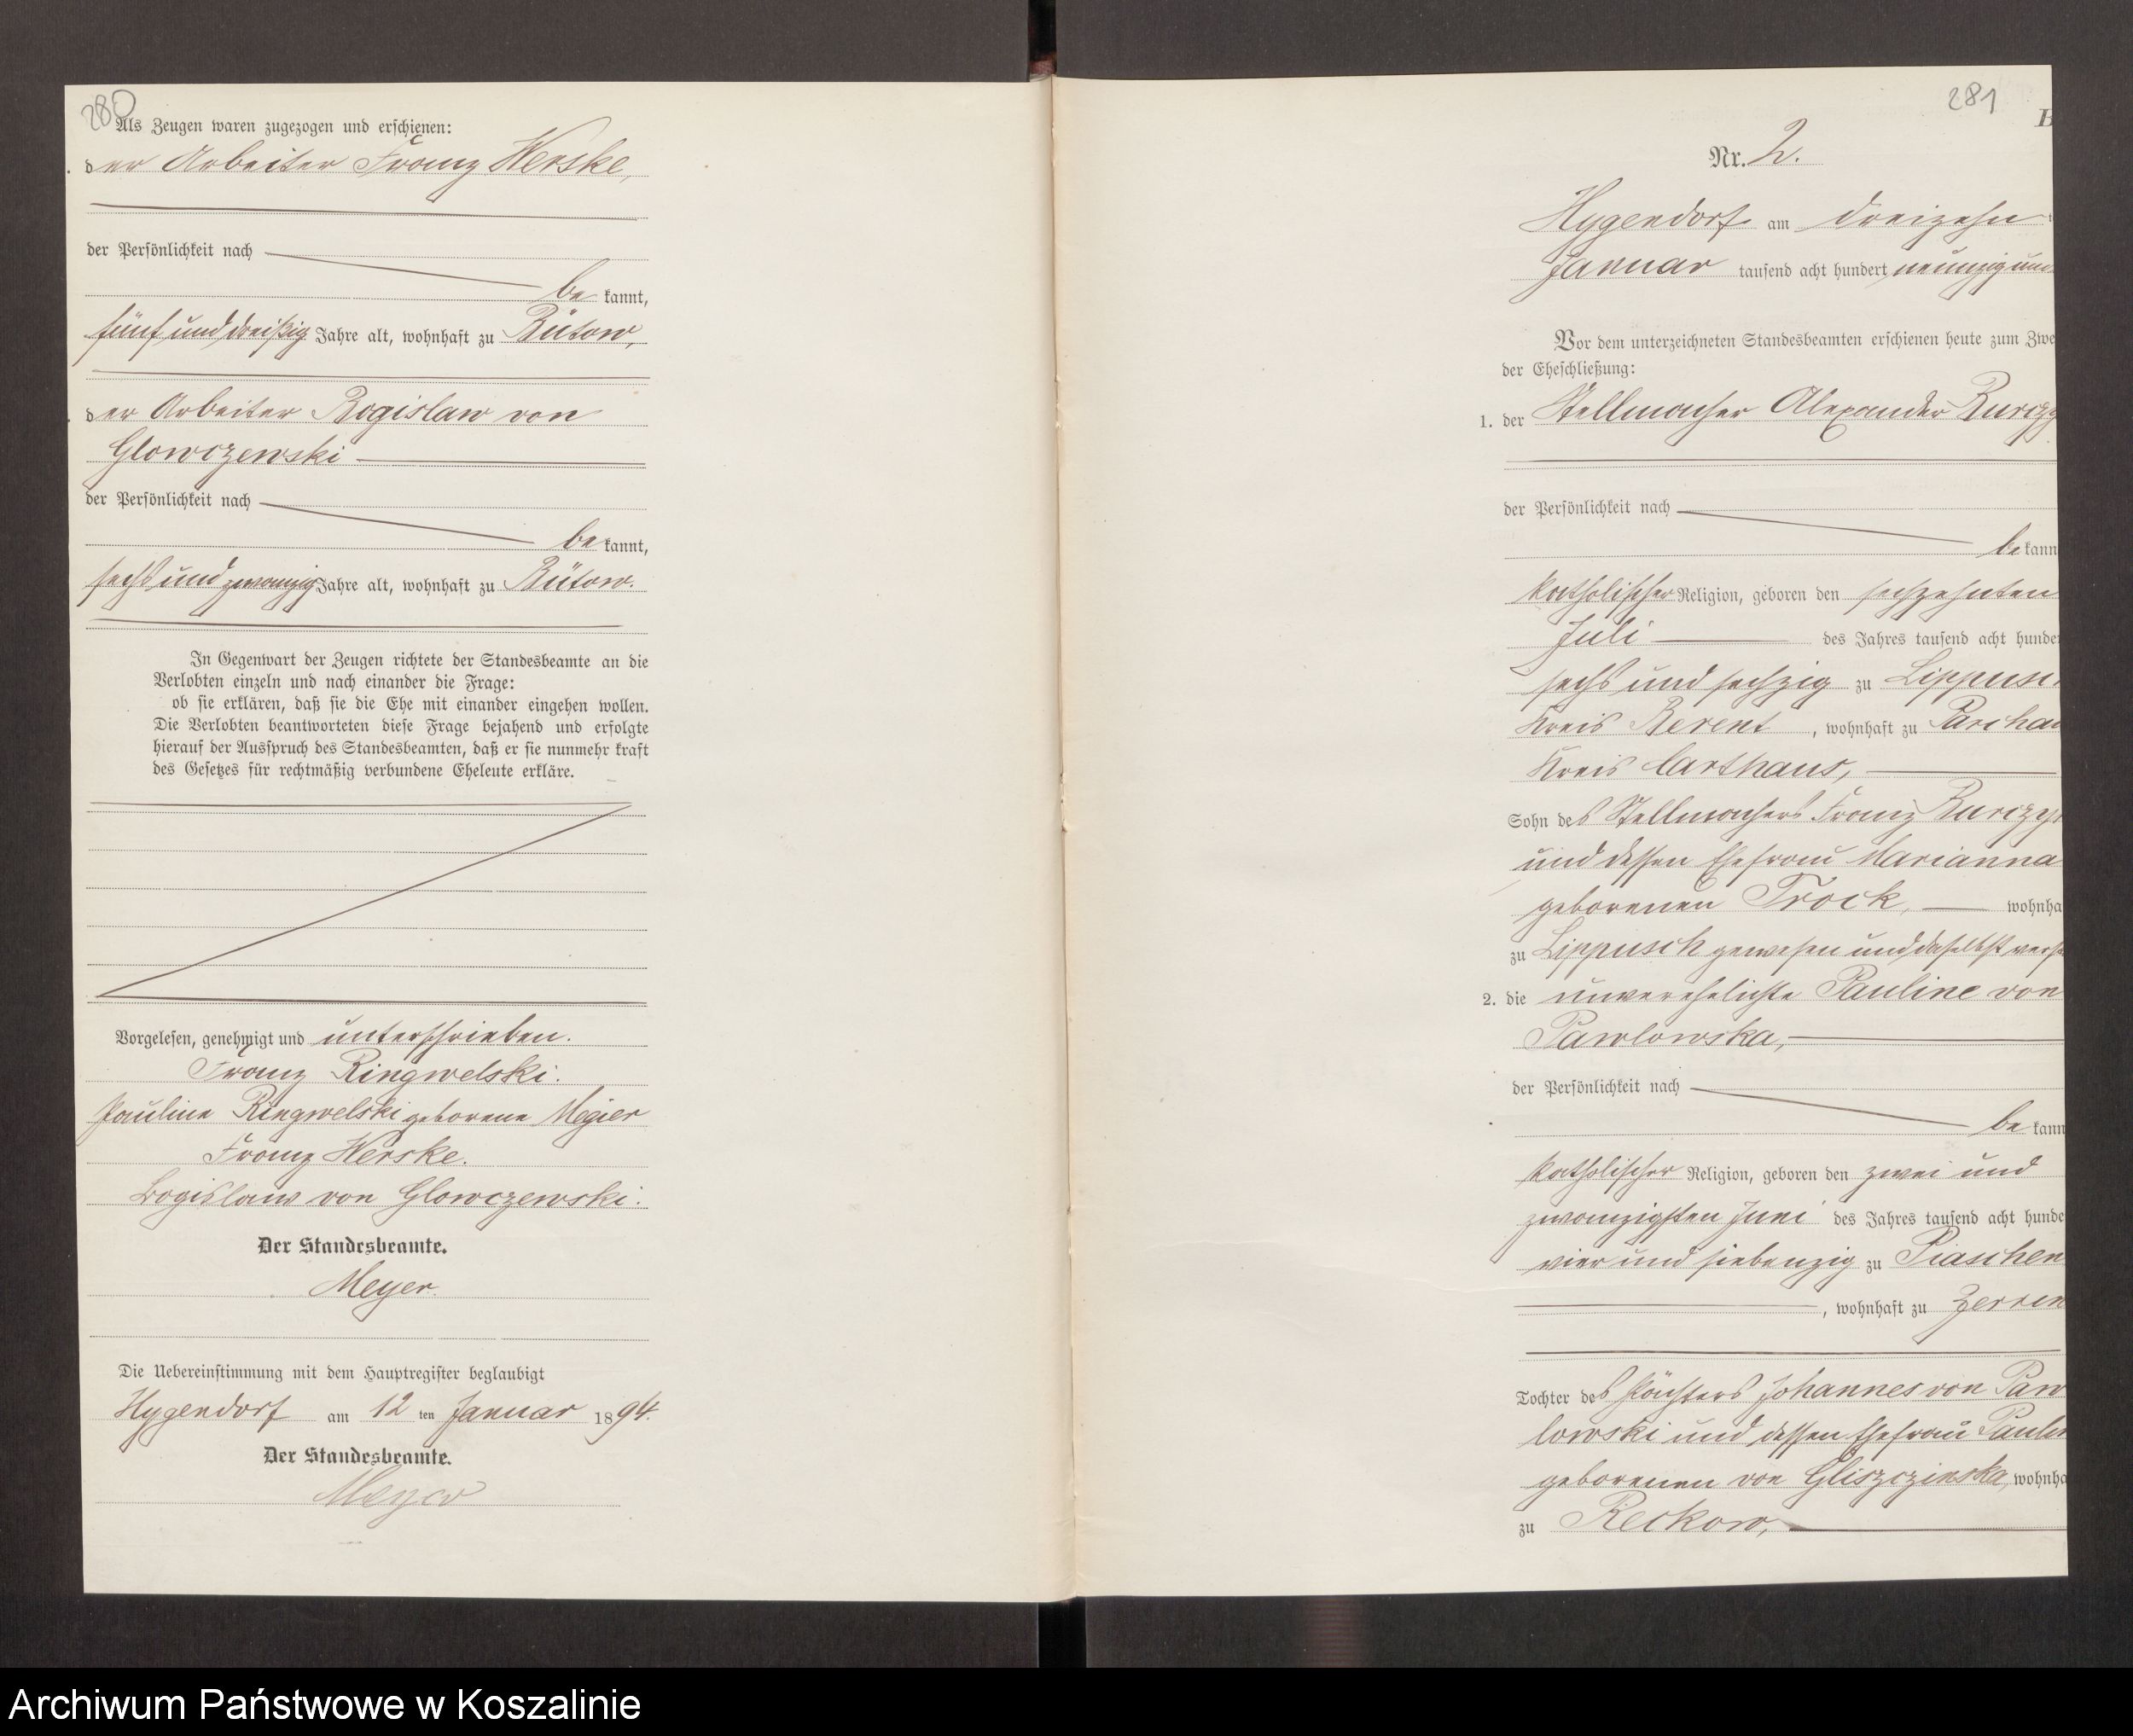 280
Als Zeugen waren zugezogen und erschienen:
der Arbeiter Franz Werske,
der Persönlichkeit nach
be kannt,
fünf und dreißig Jahre alt, wohnhaft zu Bütow,
der Arbeiter Bogislaw von
Glowczewski
der Persönlichkeit nach
be kannt,
sechs und zwanzig Jahre alt, wohnhaft zu Bütow.
In Gegenwart der Zeugen richtete der Standesbeamte an die
Verlobten einzeln und nach einander die Frage:
ob sie erklären, daß sie die Ehe mit einander eingehen wollen.
Die Verlobten beantworteten diese Frage bejahend und erfolgte
hierauf der Ausspruch des Standesbeamten, daß er sie nunmehr kraft
des Gesetzes für rechtmäßig verbundene Eheleute erkläre.
Vorgelesen, genehmigt und unterschrieben.
Franz Ringwelski.
Pauline Ringwelski geborene Megier
Franz Werske.
Bogislaw von Glowczewski.
Der Standesbeamte.
Meyer.
Die Uebereinstimmung mit dem Hauptregister beglaubigt
Hygendorf am 12 ten Januar 1894.
Der Standesbeamte.
Meyer
281
Nr. 2.
Hygendorf am dreizehn
Januar tausend acht hundert neunzig und
Vor dem unterzeichneten Standesbeamten erschienen heute zum Zwe
der Eheschließung:
1. der Stellmacher Alexander Burczy
der Persönlichkeit nach
be kann
katholischer Religion, geboren den sechzehnten
Juli des Jahres tausend acht hunde
sechs und sechzig zu Lippusc
Kreis Berent, wohnhaft zu Parchau
Kreis Carthaus,
Sohn des Stellmachers Franz Burczy
und dessen Ehefrau Marianna
geborenen Trock, wohnha
zu Lippusch gewesen und daselbst verst
2. die unverehelichte Pauline von
Pawlowska,
der Persönlichkeit nach
be kann
katholischer Religion, geboren den zwei und
zwanzigsten Juni des Jahres tausend acht hunde
vier und siebenzig zu Piaschen
, wohnhaft zu Zerrin
Tochter des Pächters Johannes von Paw
lowski und dessen Ehefrau Paulin
geborenen von Gliszczinska, wohnha
zu Reckow,
Archiwum Państwowe w Koszalinie